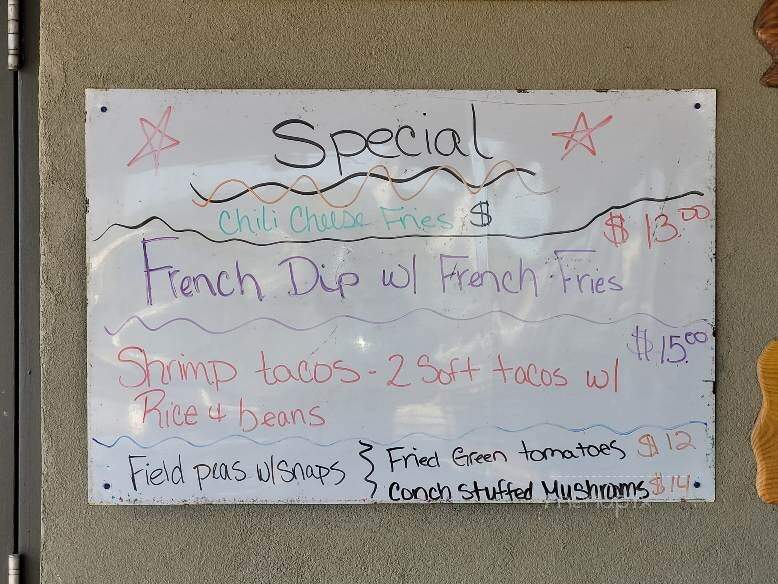 Special
Chili Cheese Fries $
$ 13.00
French Dip w/ French Fries
$15.00
Shrimp tacos - 2 Soft tacos w/
Rice & beans
Field peas w/snaps } Fried Green tomatoes $12
Conch Stuffed Mushroms $14
menupix